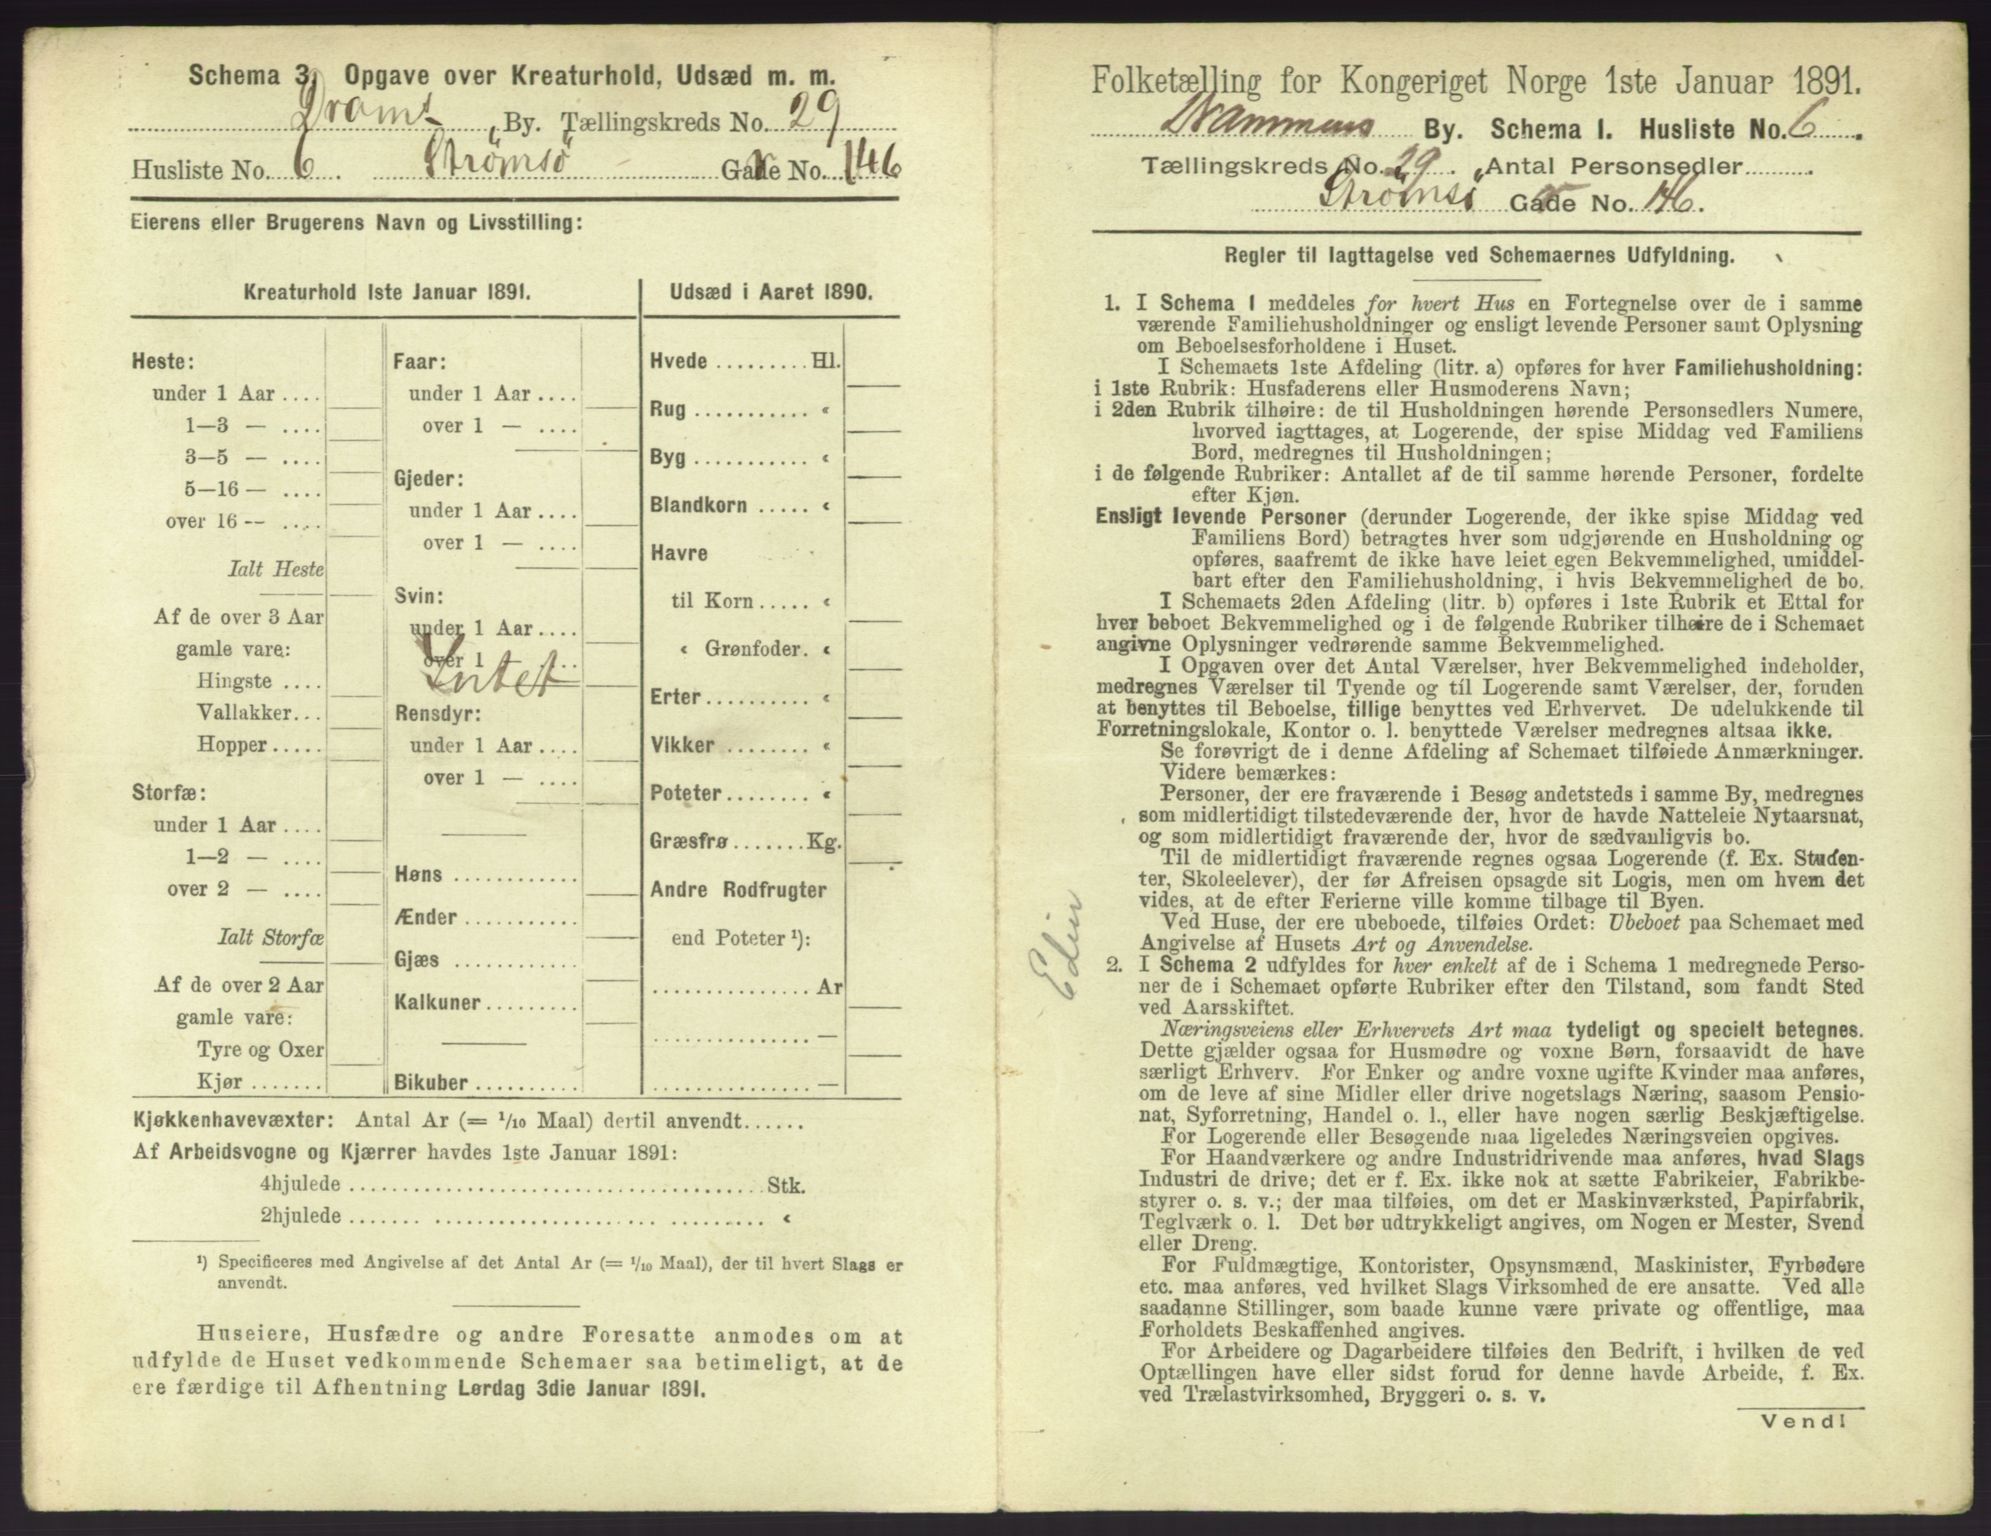 Schema 3. Opgave over Kreaturhold, Udsæd m. m.
Dram's By. Tællingskreds No. 29
Husliste No. 6. Strømsö Gade No. 146
Eierens eller Brugerens Navn og Livsstilling:
Kreaturhold 1ste Januar 1891.
Heste:
under 1 Aar ....
1—3 — ....
3—5 — ....
5—16 — ....
over 16 — ....
Ialt Heste
Af de over 3 Aar
gamle vare:
Hingste ....
Vallakker...
Hopper.....
Storfæ:
under 1 Aar ....
1—2 — ....
over 2 — ....
Ialt Storfæ
Af de over 2 Aar
gamle vare:
Tyre og Oxer
Kjør .......
Faar:
under 1 Aar ....
over 1 — ....
Gjeder:
under 1 Aar ....
over 1 — ....
Svin:
under 1 Aar....
over 1 — ....
Intet
Rensdyr:
under 1 Aar....
over 1 — ....
Høns ............
Ænder ...........
Gjæs ............
Kalkuner .........
Bikuber ..........
Udsæd i Aaret 1890.
Hvede ......... Hl.
Rug ........... "
Byg ........... "
Blandkorn ..... "
Havre
til Korn..... "
" Grønfoder. "
Erter.......... "
Vikker ........ "
Poteter........ "
Græsfrø.......Kg.
Andre Rodfrugter
end Poteter ¹):
............... Ar
............... —
............... —
Kjøkkenhavevæxter: Antal Ar (= 1/10 Maal) dertil anvendt......
Af Arbeidsvogne og Kjærrer havdes 1ste Januar 1891:
4hjulede ....................................... Stk.
2hjulede ....................................... "
¹) Specificeres med Angivelse af det Antal Ar (= 1/10 Maal), der til hvert Slags er
anvendt.
Huseiere, Husfædre og andre Foresatte anmodes om at
udfylde de Huset vedkommende Schemaer saa betimeligt, at de
ere færdige til Afhentning Lørdag 3die Januar 1891.
Folketælling for Kongeriget Norge 1ste Januar 1891.
Drammens By. Schema 1. Husliste No. 6.
Tællingskreds No. 29. Antal Personsedler..........
Strømsö Gade No. 146.
Regler til Iagttagelse ved Schemaernes Udfyldning.
1. I Schema 1 meddeles for hvert Hus en Fortegnelse over de i samme
værende Familiehusholdninger og ensligt levende Personer samt Oplysning
om Beboelsesforholdene i Huset.
I Schemaets 1ste Afdeling (litr. a) opføres for hver Familiehusholdning:
i 1ste Rubrik: Husfaderens eller Husmoderens Navn;
i 2den Rubrik tilhøire: de til Husholdningen hørende Personsedlers Numere,
hvorved iagttages, at Logerende, der spise Middag ved Familiens
Bord, medregnes til Husholdningen;
i de følgende Rubriker: Antallet af de til samme hørende Personer, fordelte
efter Kjøn.
Ensligt levende Personer (derunder Logerende, der ikke spise Middag ved
Familiens Bord) betragtes hver som udgjørende en Husholdning og
opføres, saafremt de ikke have leiet egen Bekvemmelighed, umiddel-
bart efter den Familiehusholdning, i hvis Bekvemmelighed de bo.
I Schemaets 2den Afdeling (litr. b) opføres i 1ste Rubrik et Ettal for
hver beboet Bekvemmelighed og i de følgende Rubriker tilhøire de i Schemaet
angivne Oplysninger vedrørende samme Bekvemmelighed.
I Opgaven over det Antal Værelser, hver Bekvemmelighed indeholder,
medregnes Værelser til Tyende og til Logerende samt Værelser, der, foruden
at benyttes til Beboelse, tillige benyttes ved Erhvervet. De udelukkende til
Forretningslokale, Kontor o. l. benyttede Værelser medregnes altsaa ikke.
Se forøvrigt de i denne Afdeling af Schemaet tilføiede Anmærkninger.
Videre bemærkes:
Personer, der ere fraværende i Besøg andetsteds i samme By, medregnes
som midlertidigt tilstedeværende der, hvor de havde Natteleie Nytaarsnat,
og som midlertidigt fraværende der, hvor de sædvanligvis bo.
Til de midlertidigt fraværende regnes ogsaa Logerende (f. Ex. Studen-
ter, Skoleelever), der før Afreisen opsagde sit Logis, men om hvem det
vides, at de efter Ferierne ville komme tilbage til Byen.
Ved Huse, der ere ubeboede, tilføies Ordet: Ubeboet paa Schemaet med
Angivelse af Husets Art og Anvendelse.
2. I Schema 2 udfyldes for hver enkelt af de i Schema 1 medregnede Perso-
ner de i Schemaet opførte Rubriker efter den Tilstand, som fandt Sted
ved Aarsskiftet.
Næringsveiens eller Erhvervets Art maa tydeligt og specielt betegnes.
Dette gjælder ogsaa for Husmødre og voxne Børn, forsaavidt de have
særligt Erhverv. For Enker og andre voxne ugifte Kvinder maa anføres,
om de leve af sine Midler eller drive nogetslags Næring, saasom Pensio-
nat, Syforretning, Handel o. l., eller have nogen særlig Beskjæftigelse.
For Logerende eller Besøgende maa ligeledes Næringsveien opgives.
For Haandværkere og andre Industridrivende maa anføres, hvad Slags
Industri de drive; det er f. Ex. ikke nok at sætte Fabrikeier, Fabrikbe-
styrer o. s. v.; der maa tilføies, om det er Maskinværksted, Papirfabrik,
Teglværk o. l. Det bør udtrykkeligt angives, om Nogen er Mester, Svend
eller Dreng.
For Fuldmægtige, Kontorister, Opsynsmænd, Maskinister, Fyrbødere
etc. maa anføres, ved hvilket Slags Virksomhed de ere ansatte. Ved alle
saadanne Stillinger, som baade kunne være private og offentlige, maa
Forholdets Beskaffenhed angives.
For Arbeidere og Dagarbeidere tilføies den Bedrift, i hvilken de ved
Optællingen have eller sidst forud for denne havde Arbeide, f. Ex.
ved Trælastvirksomhed, Bryggeri o. s. v.
Vend!